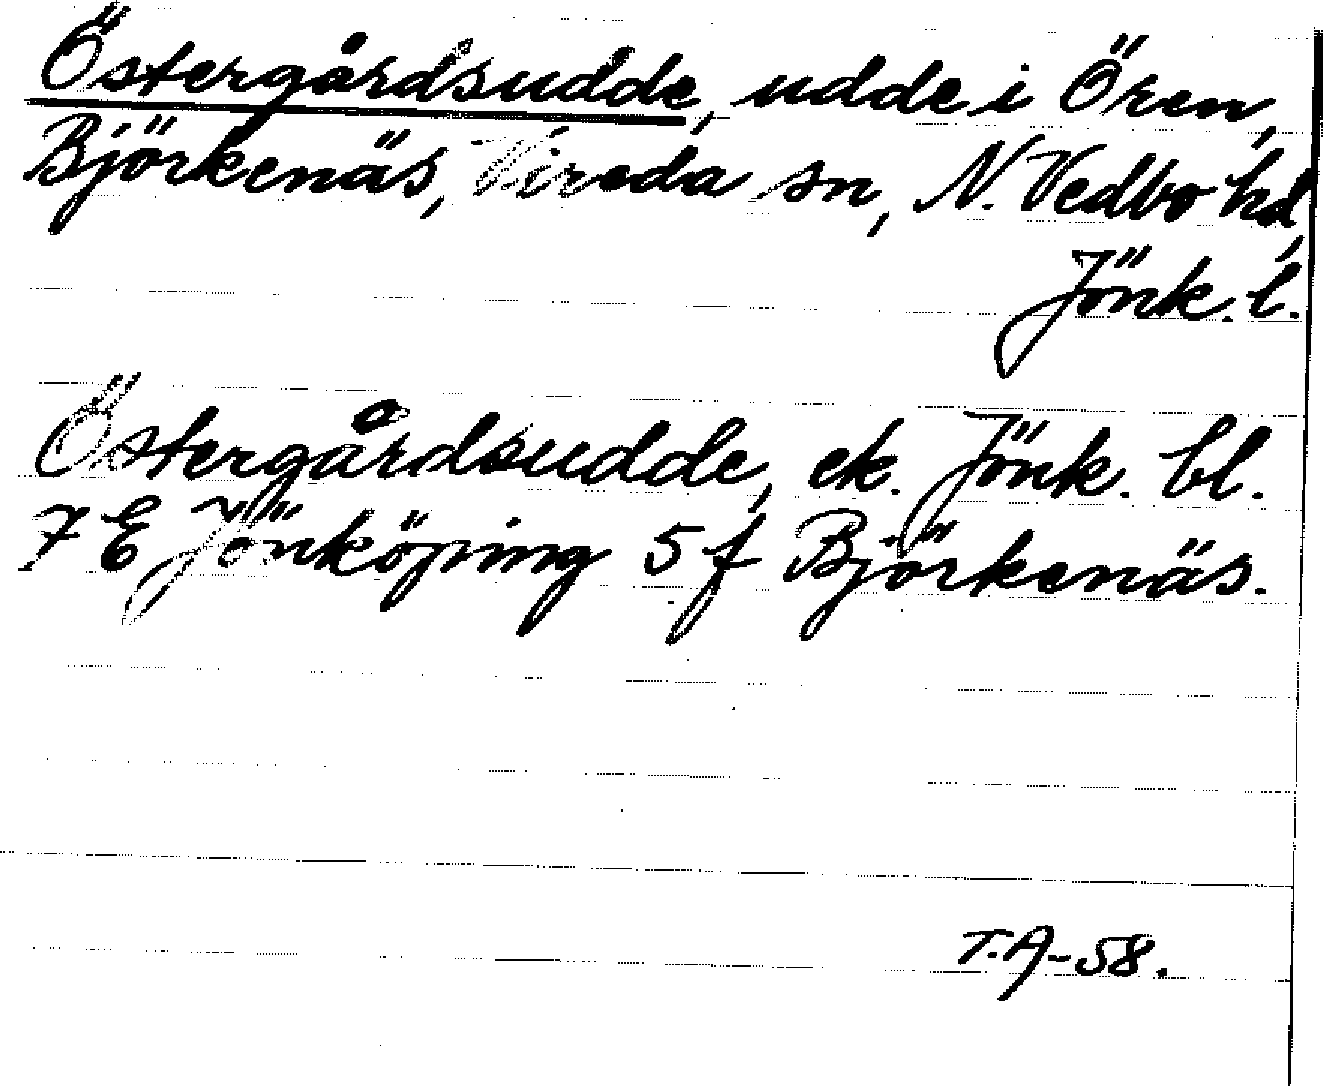 Östergårdsudde, udde i Ören,
Björkenäs, Vireda sn, N. Vedbo hd,
Jönk. l.
Östergårdsudde, ek. Jönk. bl.
7 E Jönköping 5 f Björkenäs.
T.A-58.